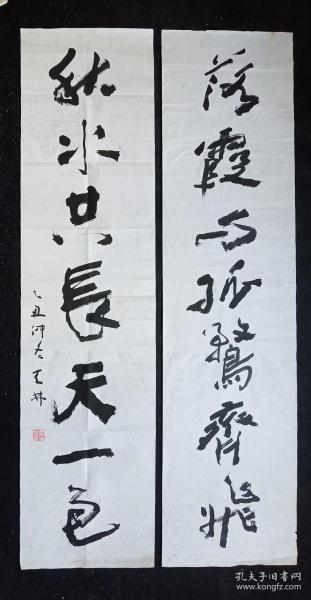 落霞与孤鶩齊飛
秋水共長天一色
乙丑仲冬
孔夫子旧书网
www.kongfz.com